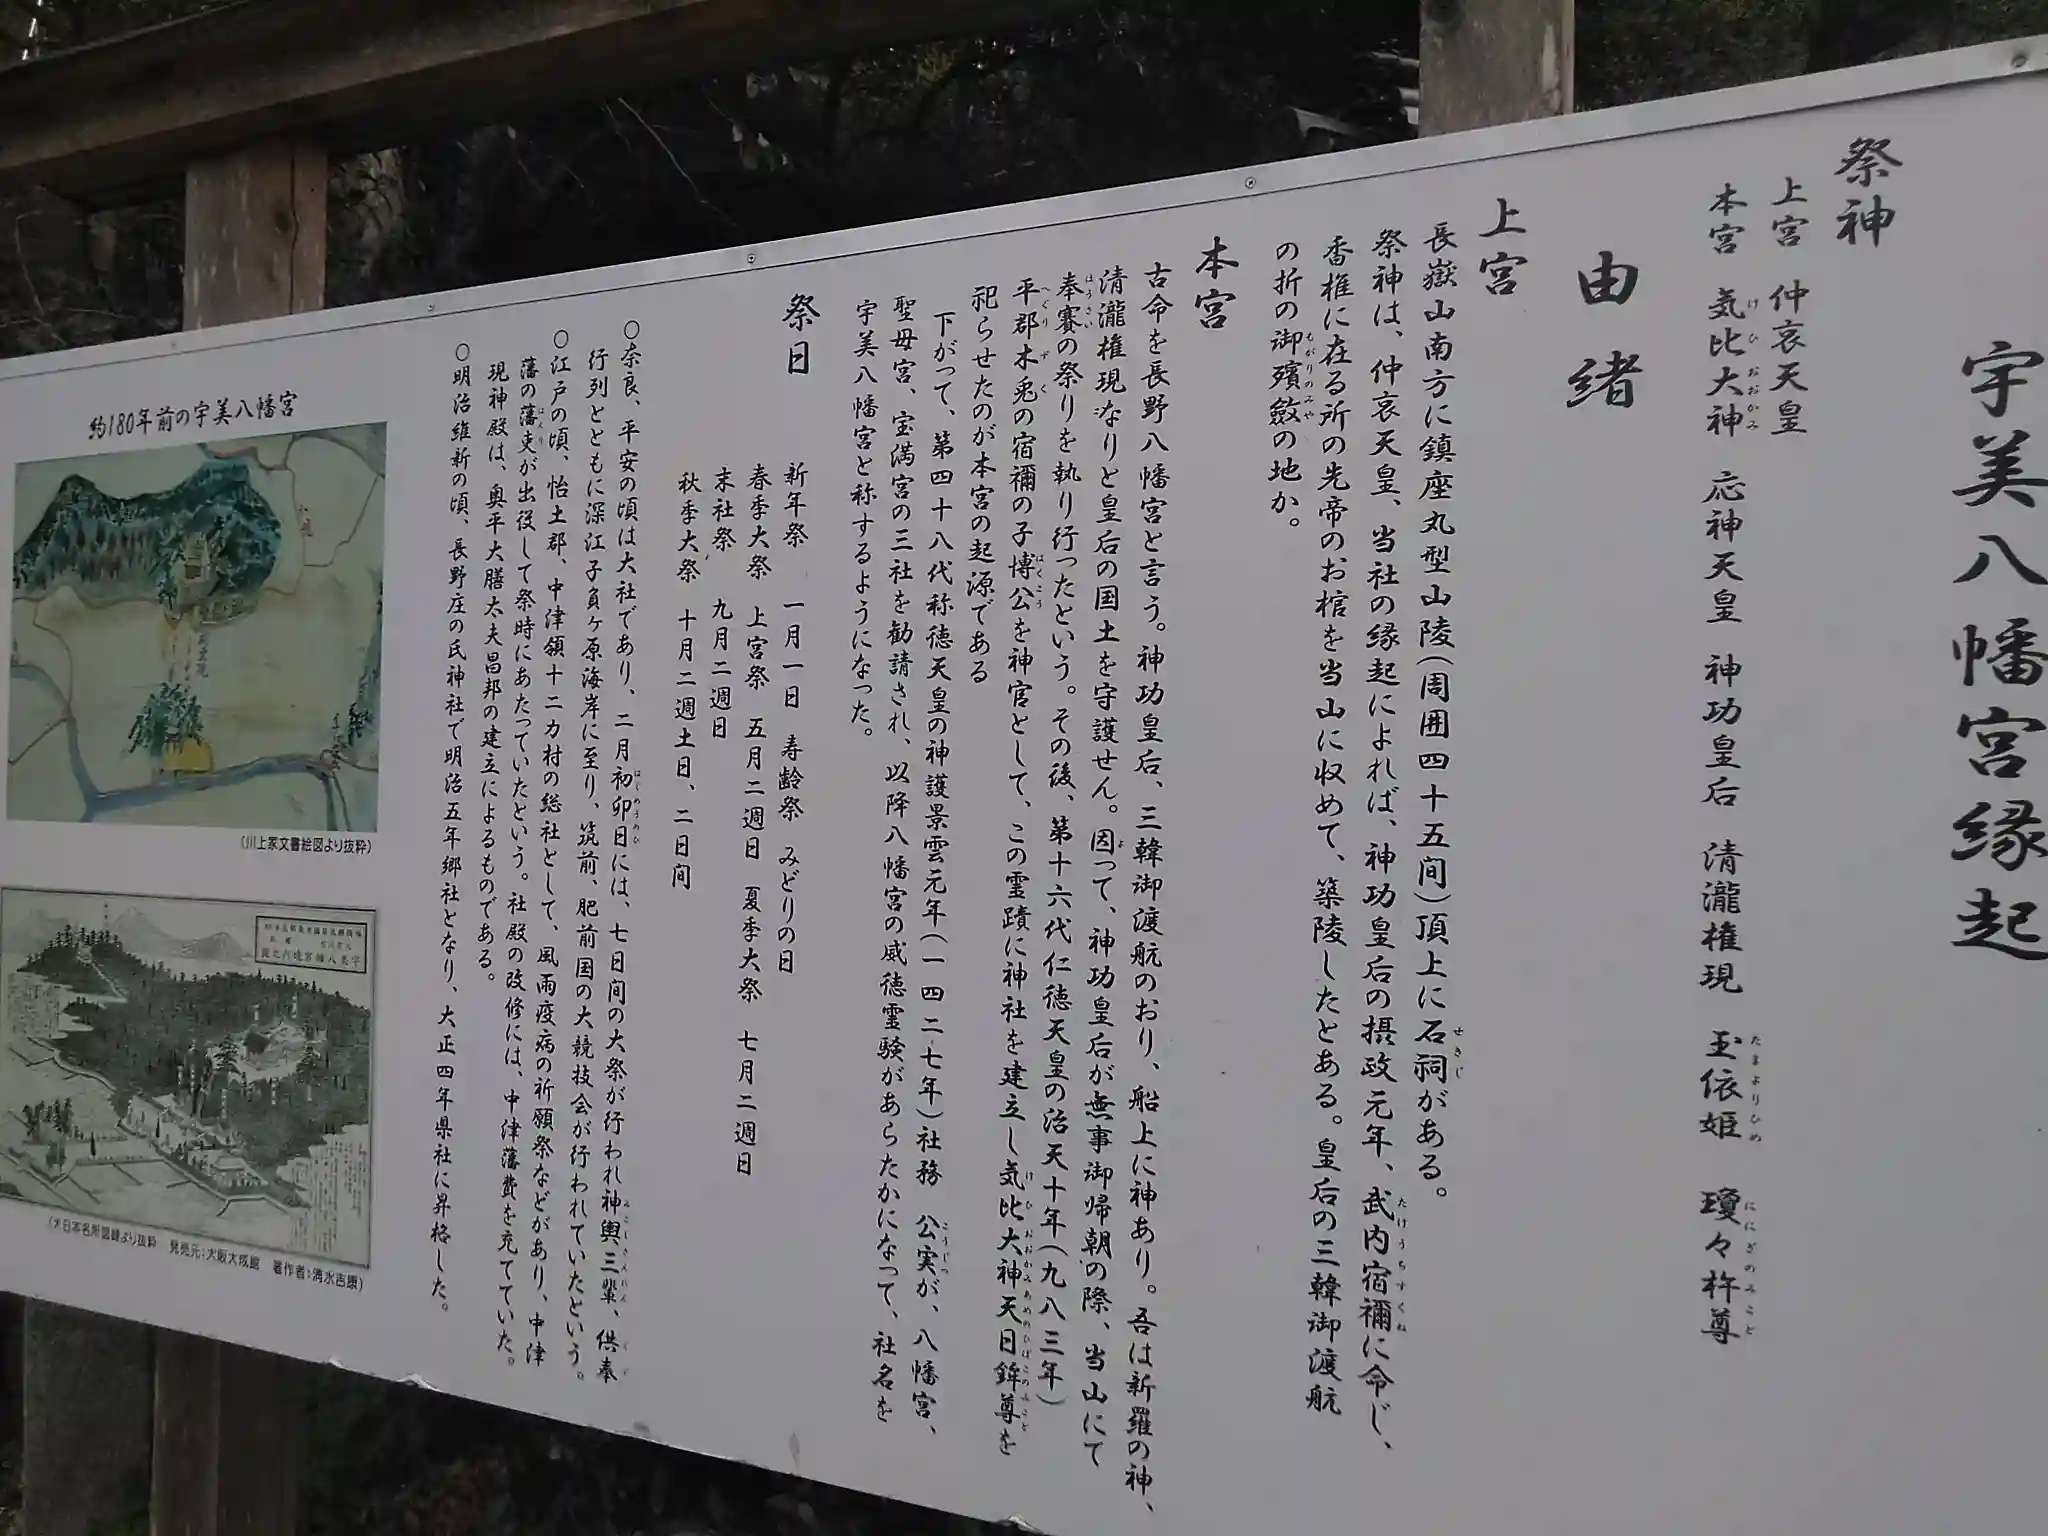 宇美八幡宮縁起
祭神
上宮 仲哀天皇
本宮 気比大神 応神天皇 神功皇后 清瀧権現 玉依姫 瓊々杵尊
けひおおかみ たまよりひめ ににぎのみこと
由緒
上宮
長嶽山南方に鎮座丸型山陵(周囲四十五間)頂上に石祠がある。
せきし
祭神は、仲哀天皇、当社の縁起によれば、神功皇后の摂政元年、武内宿禰に命じ、
たけうちすくね
香椎に在る所の先帝のお棺を当山に収めて、築陵したとある。皇后の三韓御渡航
の折の御殯斂の地か。
むがりのみや
本宮
古命を長野八幡宮と言う。神功皇后、三韓御渡航のおり、船上に神あり。吾は新羅の神、
清瀧権現なりと皇后の国土を守護せん。因って、神功皇后が無事御帰朝の際、当山にて
よ
奉賽の祭りを執り行ったという。その後、第十六代仁徳天皇の治天十年(九八三年)
ほうさい
平郡木兎の宿禰の子博公を神官として、この霊蹟に神社を建立し気比大神天日鉾尊を
へぐりずく はくこう けひおおかみあめのひぼこのみこと
祀らせたのが本宮の起源である
下がって、第四十八代称徳天皇の神護景雲元年(一四二七年)社務 公実が、八幡宮、
こうじつ
聖母宮、宝満宮の三社を勧請され、以降八幡宮の威徳霊験があらたかになって、社名を
宇美八幡宮と称するようになった。
祭日
新年祭 一月一日 寿齢祭 みどりの日
春季大祭 上宮祭 五月二週日 夏季大祭 七月二週日
末社祭 九月二週日
秋季大祭 十月二週土日、二日間
〇奈良、平安の頃は大社であり、二月初卯日には、七日間の大祭が行われ神輿三輩、供奉
はじめうのひ みこしさんはい ぐぶ
行列とともに深江子負ヶ原海岸に至り、筑前、肥前国の大競技会が行われていたという。
〇江戸の頃、怡土郡、中津領十二カ村の総社として、風雨疫病の祈願祭などがあり、中津
藩の藩吏が出役して祭時にあたっていたという。社殿の改修には、中津藩費を充てていた。
はんり
現神殿は、奥平大膳太夫昌邦の建立によるものである。
〇明治維新の頃、長野庄の氏神社で明治五年郷社となり、大正四年県社に昇格した。
約180年前の宇美八幡宮
(川上家文書絵図より抜粋)
宇美八幡宮境内之図
(大日本名所図録より抜粋 発売元:大阪大成館 著作者:清水吉康)